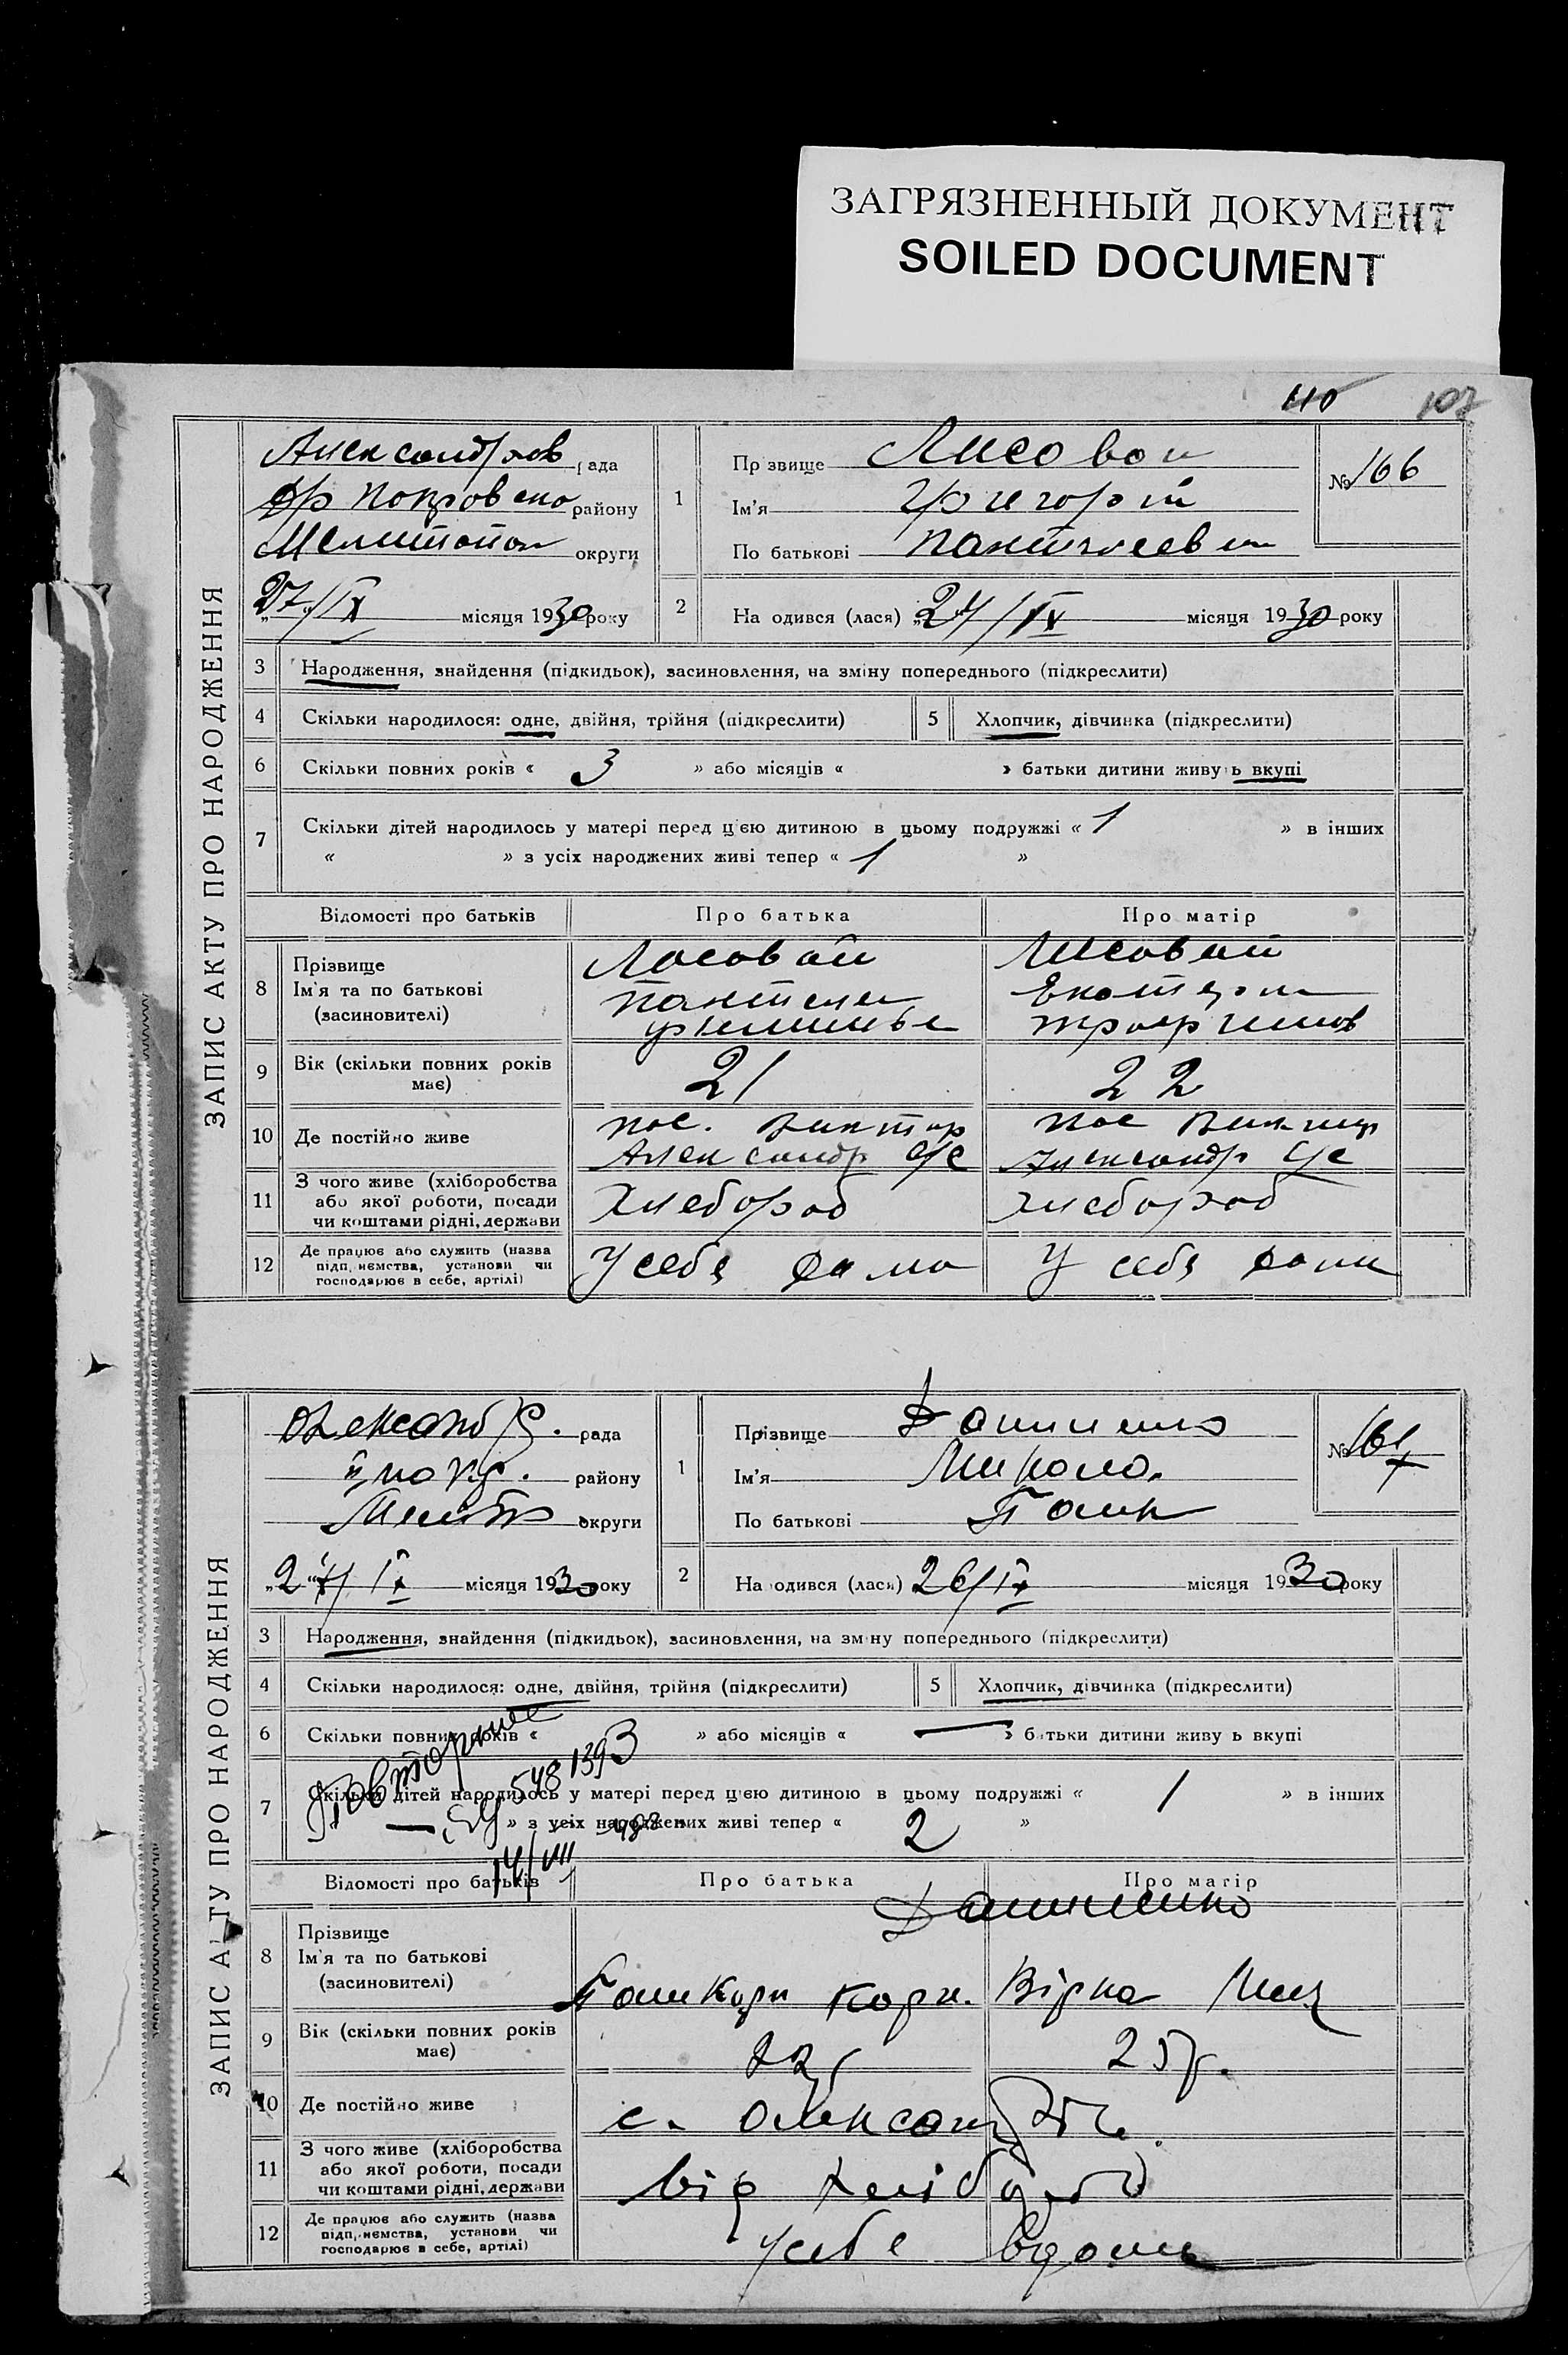 ЗАГРЯЗНЕННЫЙ ДОКУМЕНТ
SOILED DOCUMENT
110 107
ЗАПИС АКТУ ПРО НАРОДЖЕННЯ
Александров рада
района
Мелитопол округи
27/IX місяця 1930 року
1
Пр звище Лисовои
Ім'я Григорий
По батькові Пантилеев
№ 166
2 На одився (лася) „24/IX місяця 1930 року
3 Народження, знайдення (підкидьок), засиновлення, на зміну попереднього (підкреслити)
4 Скільки народилося: одне, двійня, трійня (підкреслити) 5 Хлопчик, дівчинка (підкреслити)
6 Скільки повних років « 3 » або місяців « » батьки дитини живу ь вкупі
7 Скільки дітей народилось у матері перед цією дитиною в цьому подружжі « 1 » в інших
« » з усіх народжених живі тепер « 1 »
Відомості про батьків Про батька Про матір
8 Прізвище Ласовай Лисовай
Ім'я та по батькові Пантилеи Екатерин
(засиновителі)
9 Вік (скільки повних років має) 21 22
10 Де постійно живе пос. Виктор пос Виктор
Александр с/с Александр с/с
11 З чого живе (хліборобства або якої роботи, посади чи коштами рідні, держави Хлебороб хлебороб
12 Де працює або служить (назва підп, иємства, установи чи господарює в себе, артілі) У себя дома У себя дома
ЗАПИС А ТУ ПРО НАРОДЖЕННЯ
Олександр. рада
покр. району
округи
„27/IX місяця 1930 року
1
Прізвище Данченко
Ім'я Микола.
По батькові
№ 167
2 На одився (лася) 26/IX місяця 1930 року
3 Народження, знайдення (підкидьок), засиновлення, на зм ну попереднього (підкреслити)
4 Скільки народилося: одне, двійня, трійня (підкреслити) 5 Хлопчик, дівчинка (підкреслити)
6 Скільки повних років « » або місяців « — » батьки дитини живу ь вкупі
Повторное
548 1393
7 Скільки дітей народилось у матері перед цією дитиною в цьому подружжі « 1 » в інших
» з усіх народжених живі тепер « 2 »
14/VIII
Відомості про батьків Про батька Про матір
8 Прізвище
Ім'я та по батькові
(засиновителі)
Корн. Вірка
9 Вік (скільки повних років має) 22 25 р.
10 Де постійно живе с. Олександ
11 З чого живе (хліборобства або якої роботи, посади чи коштами рідні, держави від
12 Де працює або служить (назва підп, иємства, установи чи господарює в себе, артілі) у себе вдома